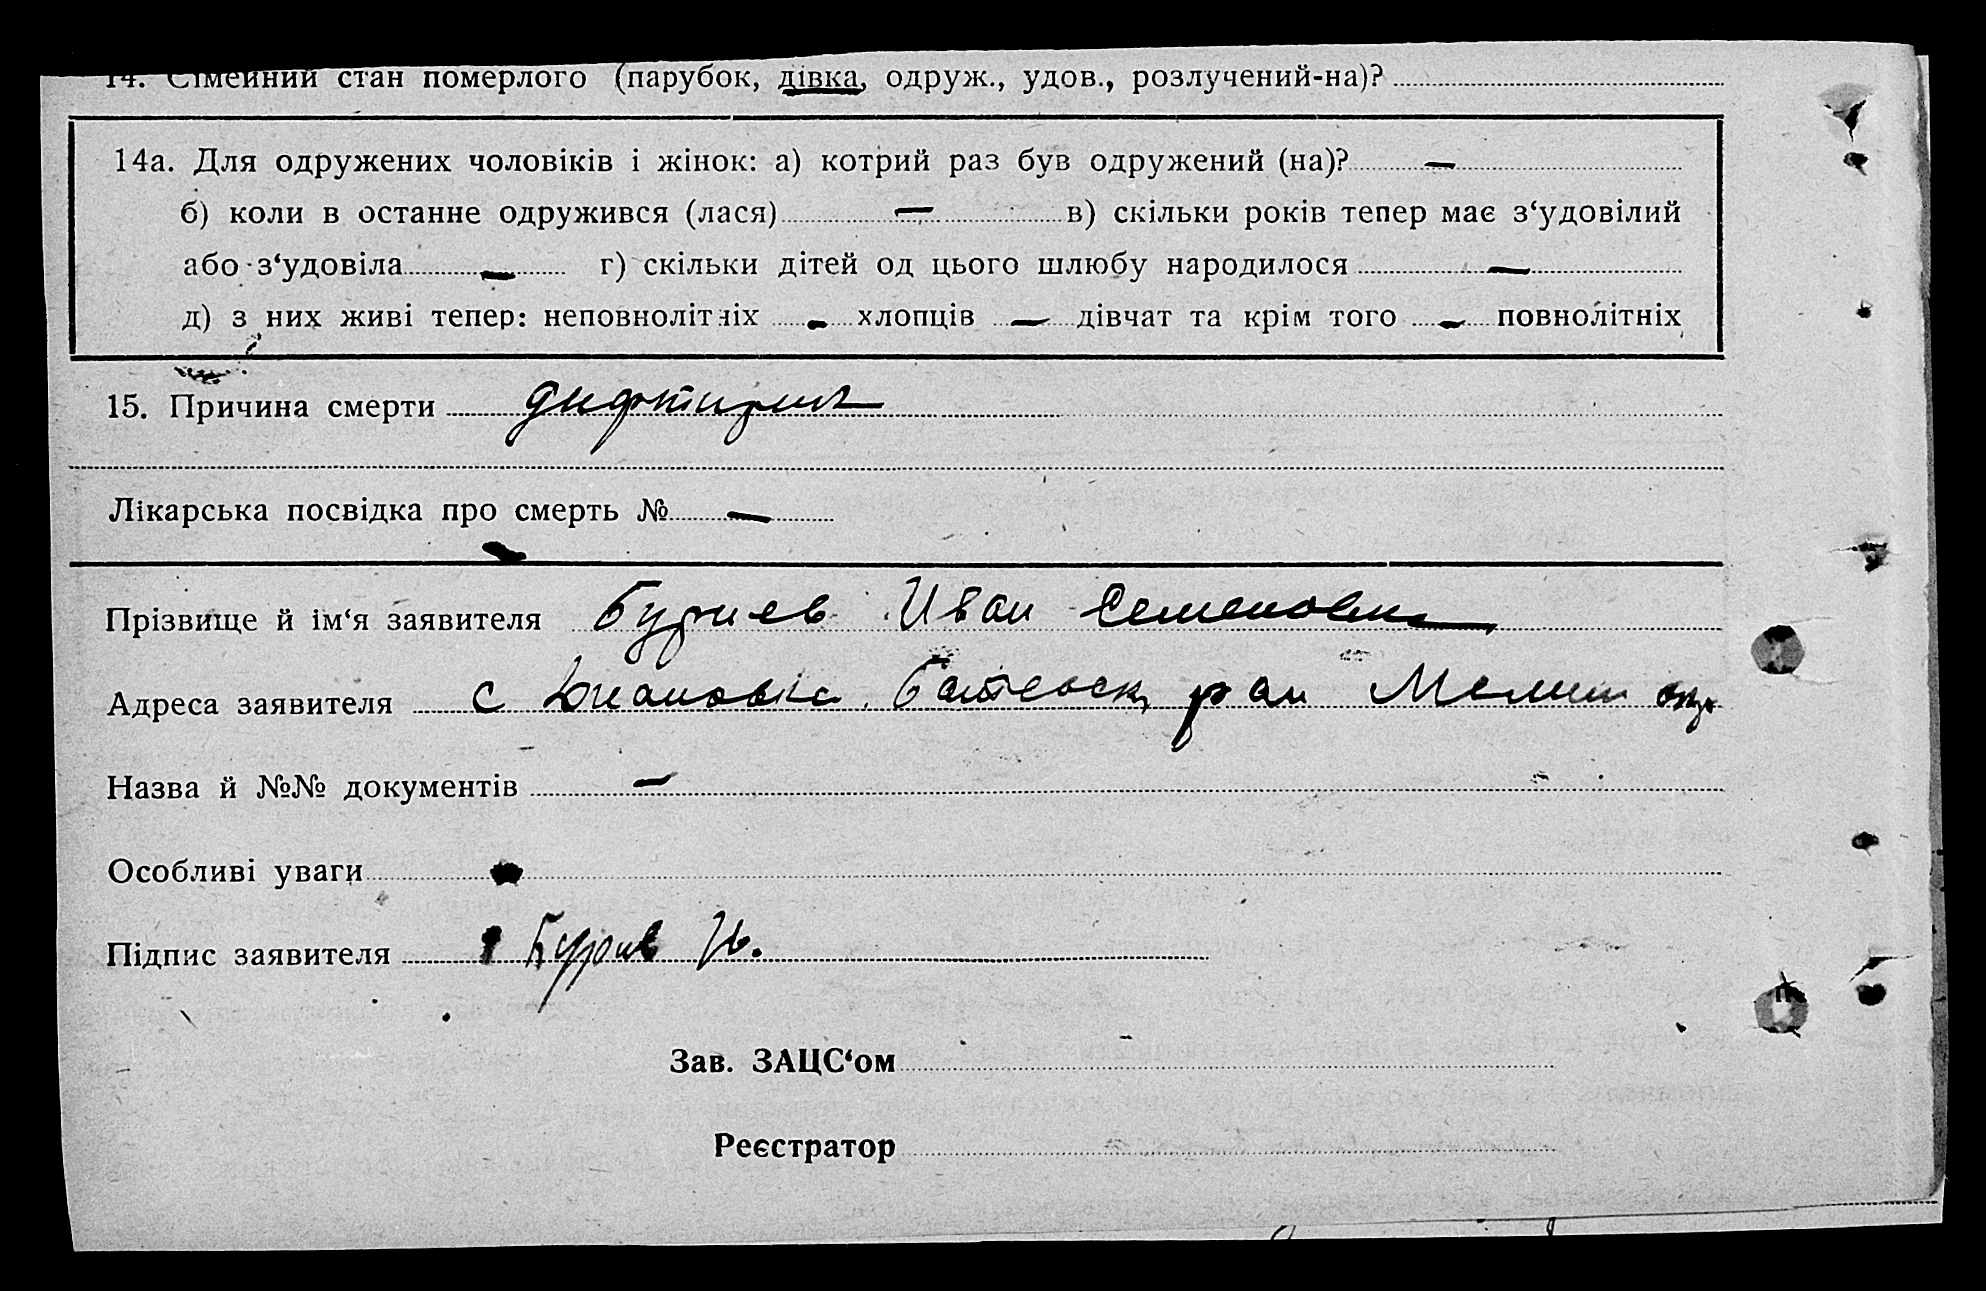 14. Сімейний стан померлого (парубок, дівка, одруж., удов., розлучений-на)?
14а. Для одружених чоловіків і жінок: а) котрий раз був одружений (на)? —
б) коли в останне одружився (лася) — в) скільки років тепер має з‘удовілий
або з‘удовіла — г) скільки дітей од цього шлюбу народилося —
д) з них живі тепер: неповнолітніх — хлопців — дівчат та крім того — повнолітніх
15. Причина смерти дифтирия
Лікарська посвідка про смерть № —
Прізвище й ім‘я заявителя Буриев Иван Семенович
Адреса заявителя с Ботевск ран Мелит окр
Назва й №№ документів —
Особливі уваги
Підпис заявителя Ив.
Зав. ЗАЦС‘ом
Реєстратор